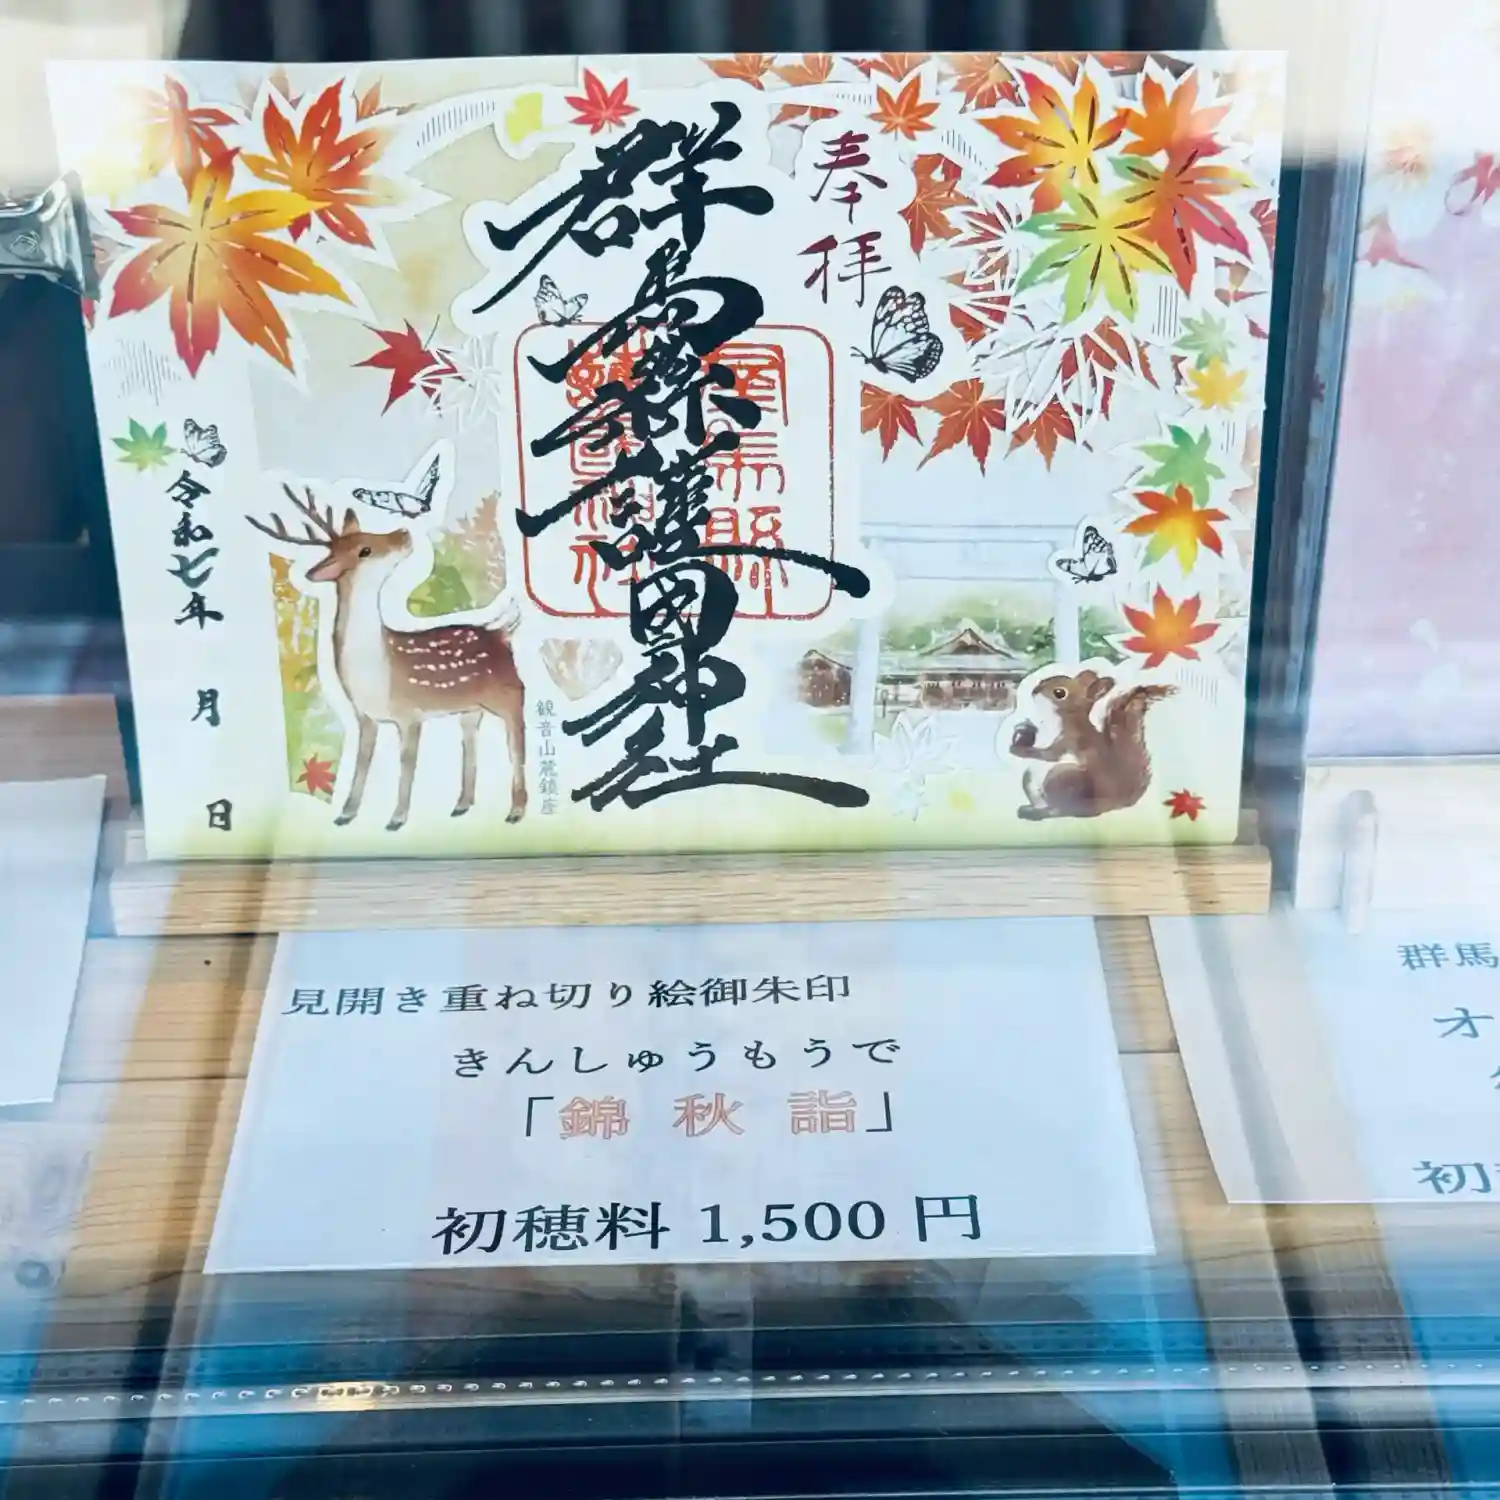 奉拝
群馬縣護國神社
群馬縣
護國神社
観音山麓鎮座
令和七年 月 日
見開き重ね切り絵御朱印
きんしゅうもうで
「錦 秋 詣」
初穂料 1,500 円
群馬
オ
初